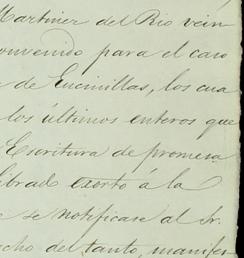 Martinez del Rio vein
convenido para el caso
de Encinillas, los cua
los últimos enteros que
Escritura de promesa
librado exorto á la
se notificase al Sr.
cho del tanto, manifes